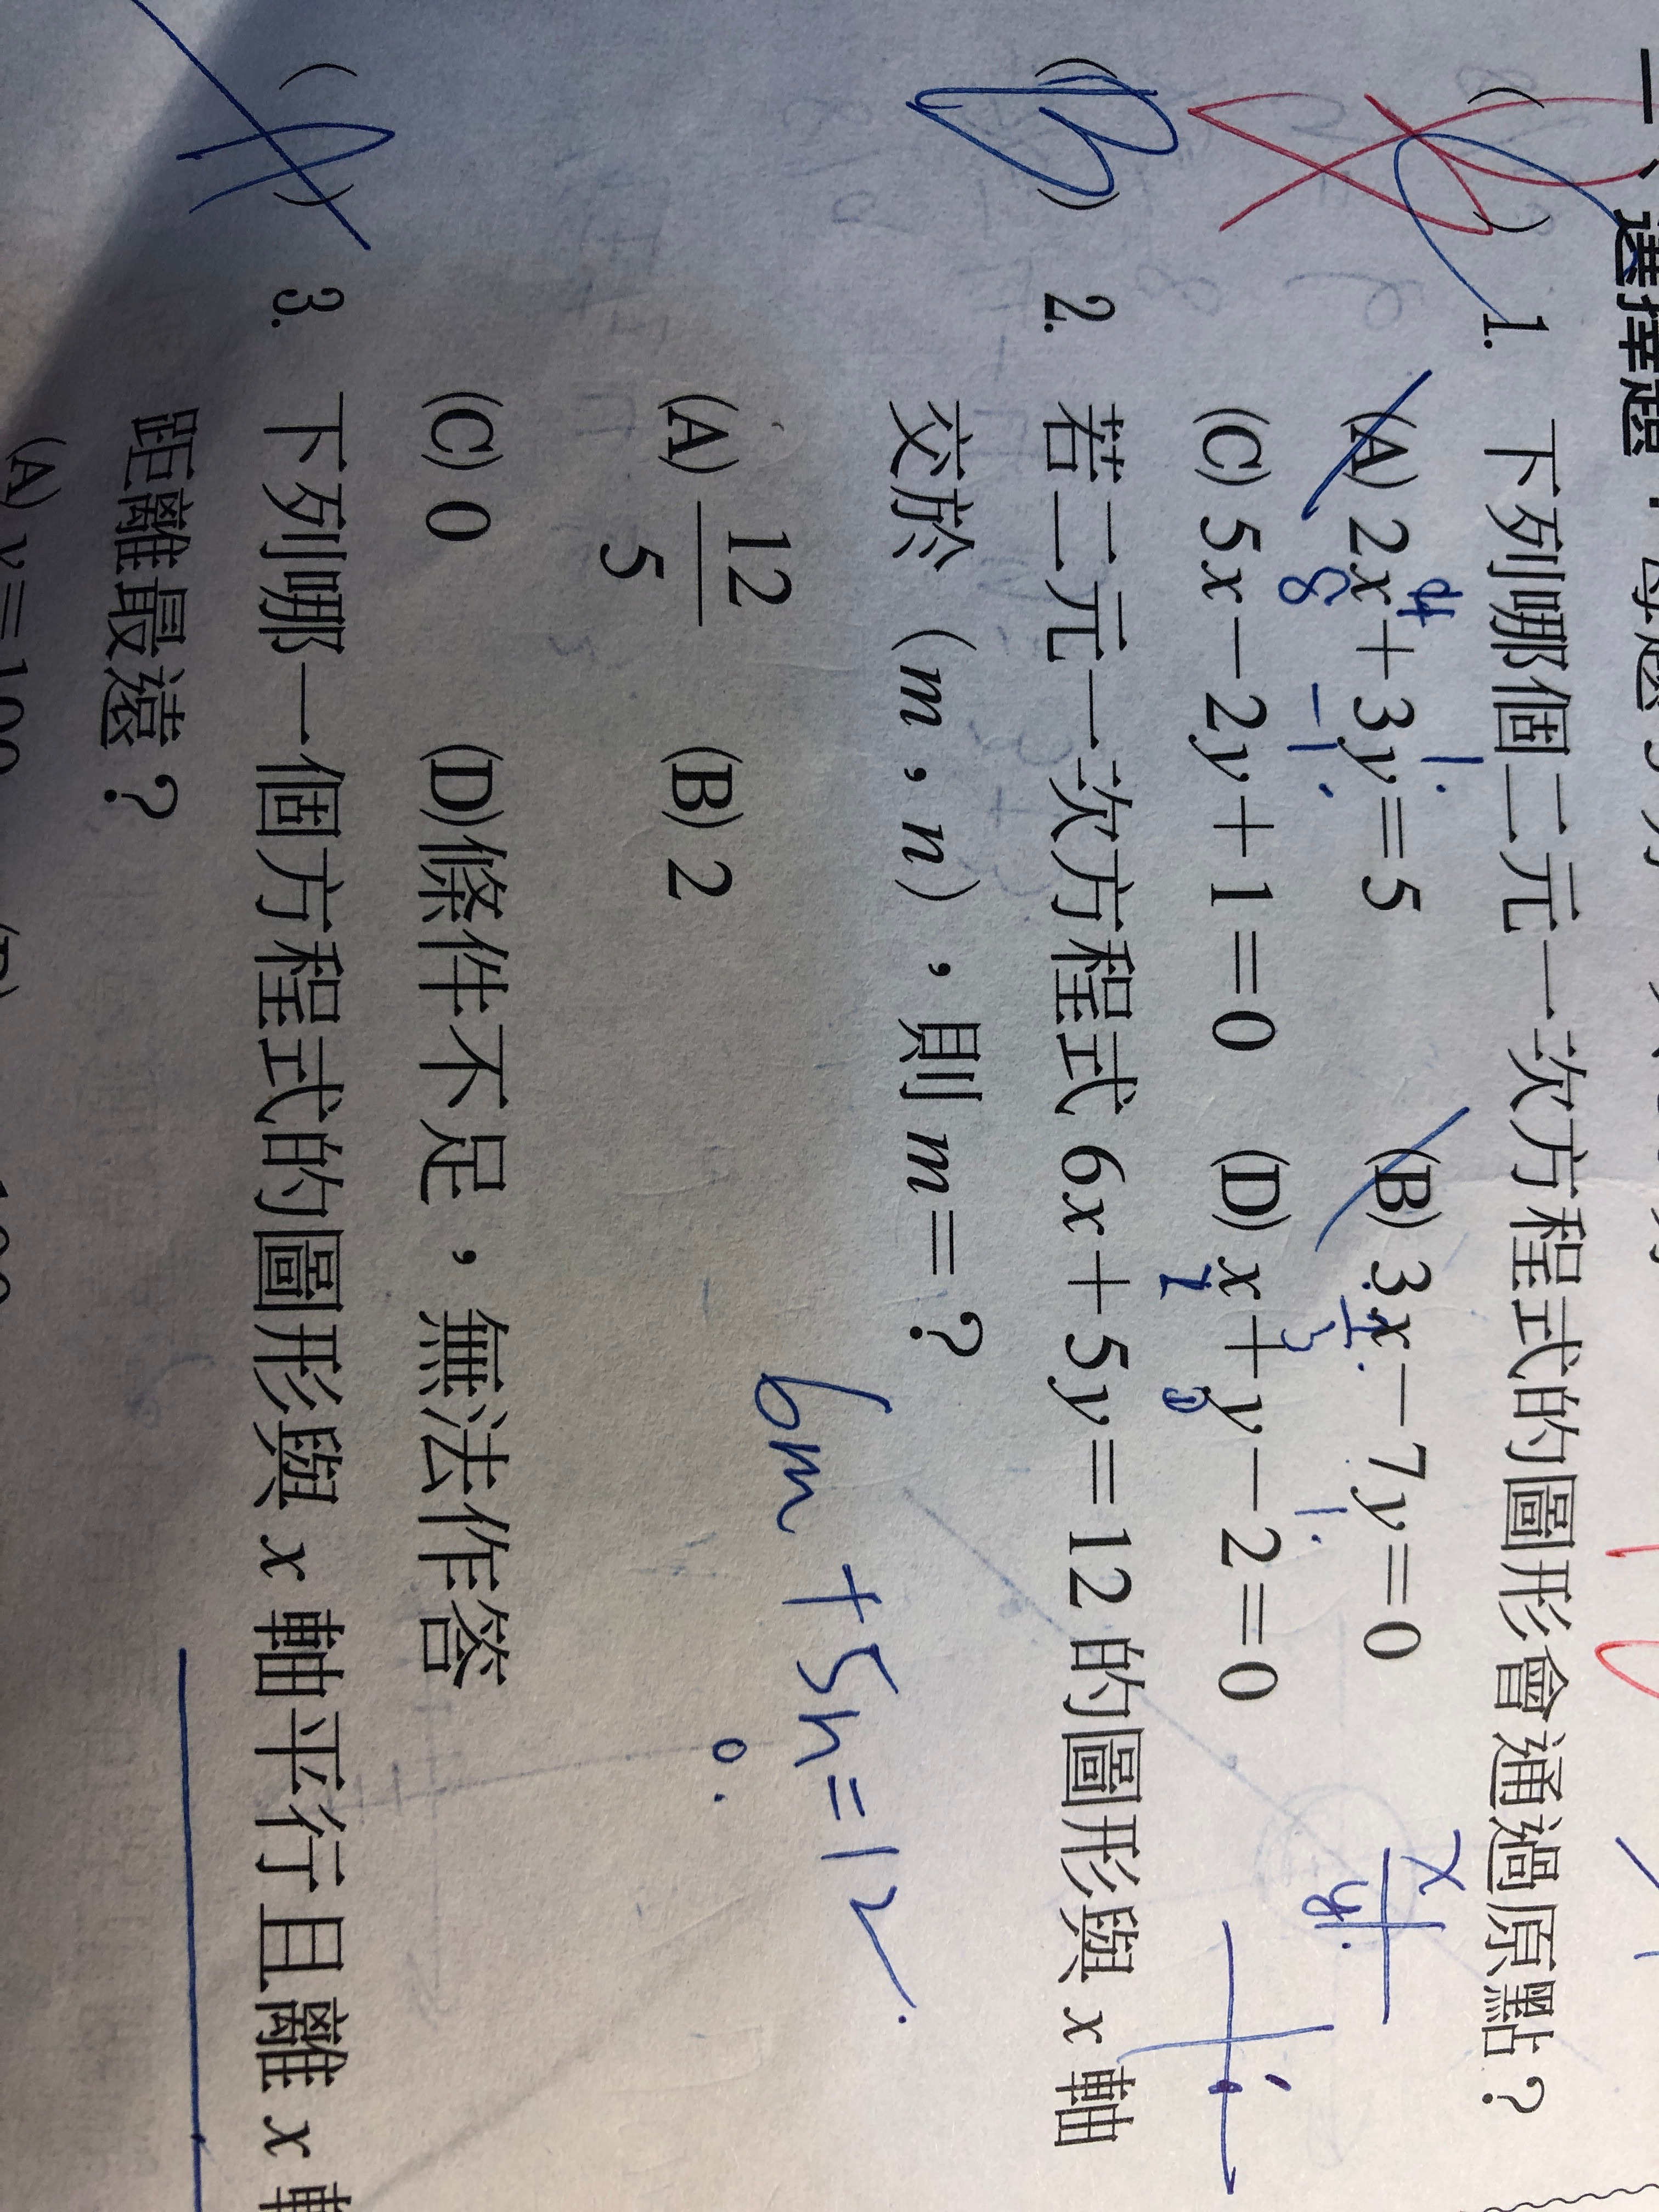 一、選擇題：每題5分
( ) 1. 下列哪個二元一次方程式的圖形會通過原點？
(A) 2x＋3y＝5 (B) 3x－7y＝0
(C) 5x－2y＋1＝0 (D) x＋y－2＝0
(B) 2. 若二元一次方程式 6x＋5y＝12 的圖形與 x 軸
交於（m，n），則 m＝？
6m + 5n = 12
(A) 12/5 (B) 2
0.
(C) 0 (D) 條件不足，無法作答
(A) 3. 下列哪一個方程式的圖形與 x 軸平行且離 x 軸
距離最遠？
(A) y＝100